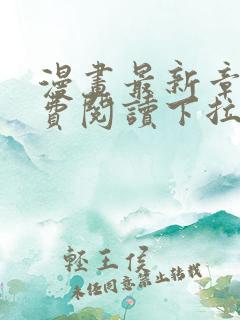 漫畫最新章
費閱讀下拉
輕王侯
未經同意禁止轉載